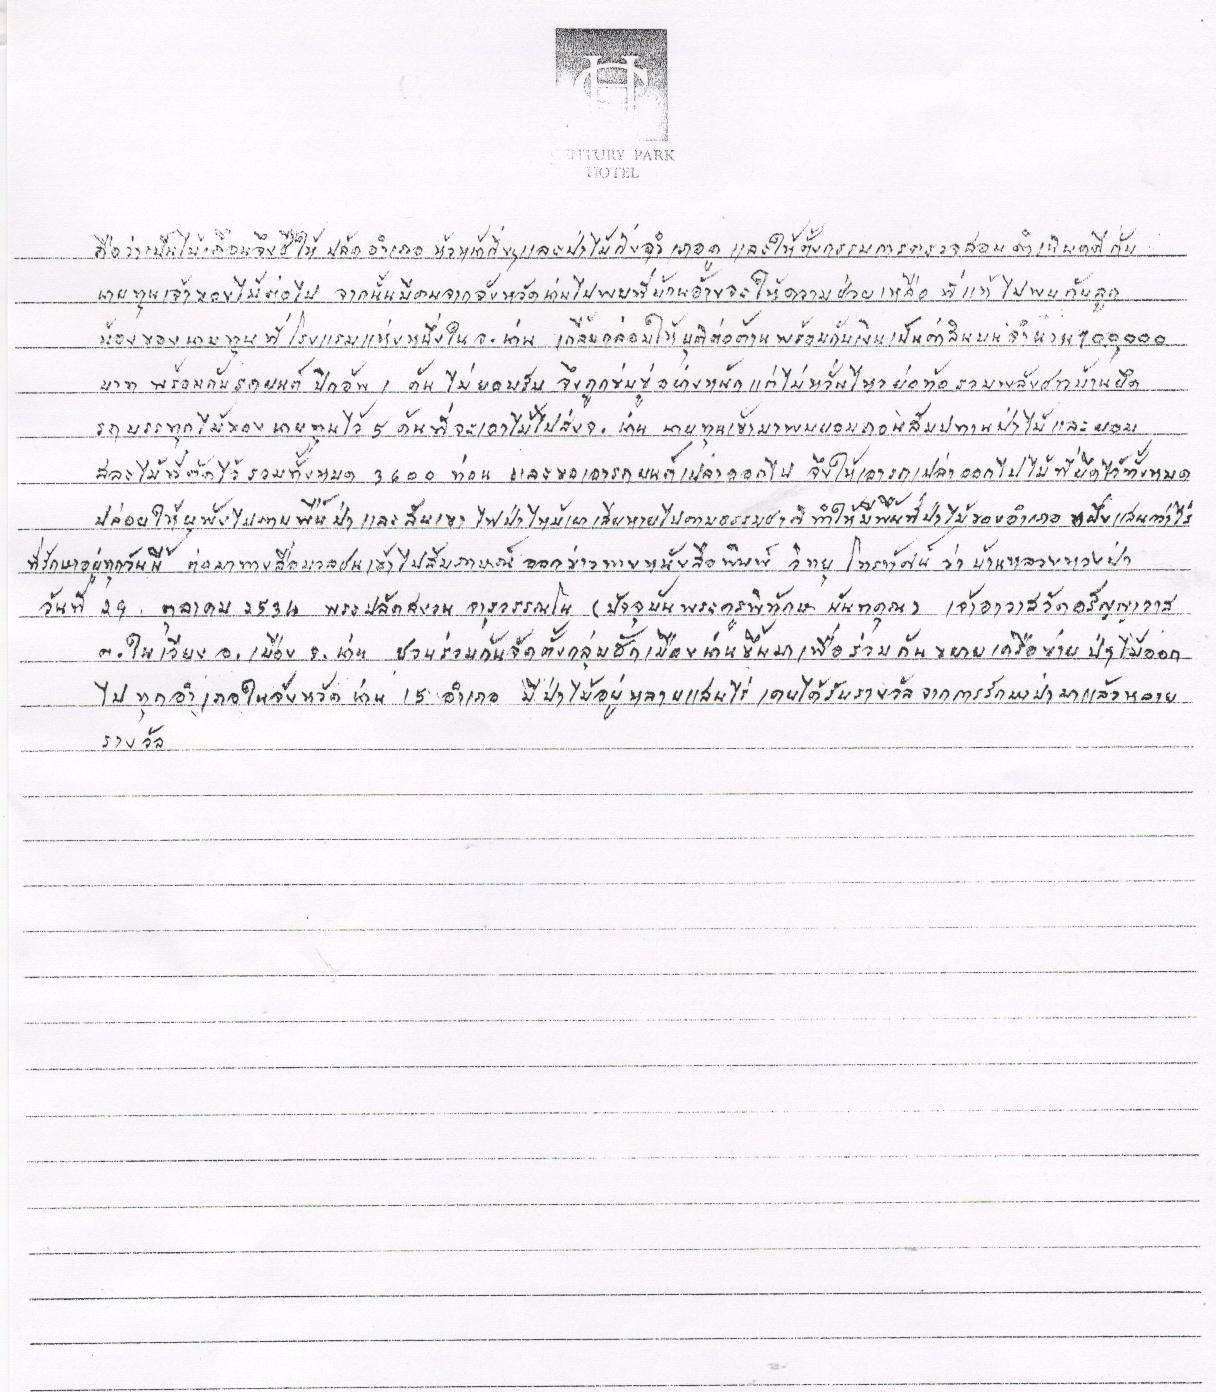 CENTURY PARK
HOTEL
ถือว่าเป็นไม้เถื่อนจึงชี้ให้ ปลัดอำเภอ หัวหน้ากิ่งฯและป่าไม้กิ่งอำเภอดู และให้ตั้งกรรมการตรวจสอบดำเนินคดีกับ
นายทุนเจ้าของไม้ต่อไป จากนั้นมีคนจากจังหวัดน่านไปพบที่บ้านอ้างจะให้ความช่วยเหลือ ที่แท้ไปพบกับลูก
น้องของนายทุนที่โรงแรมแห่งหนึ่งใน จ.น่าน เกลี้ยกล่อมให้ยุติต่อต้าน พร้อมกับเงินเป็นค่าสินบนจำนวน 700,000
บาท พร้อมกับรถยนต์ ปิกอัพ 1 คัน ไม่ยอมรับ จึงถูกข่มขู่อย่างหนักแต่ไม่หวั่นไหวย่อท้อ รวมพลังชาวบ้านยึด
รถบรรทุกไม้ของนายทุนไว้ 5 คันที่จะเอาไม้ไปส่งจ. น่าน นายทุนเข้ามาพบยอมถอนสัมปทานป่าไม้และยอม
สละไม้ที่ตัดไว้ รวมทั้งหมด 3600 ท่อน และขอเอารถยนต์เปล่าออกไป จึงให้เอารถเปล่าออกไปไม้ที่ยึดไว้ทั้งหมด
ปล่อยให้ผุพังไปตามพื้นป่าและสันเขา ไฟป่าไหม้เผาเสียหายไปตามธรรมชาติ ทำให้มีพื้นที่ป่าไม้ของอำเภอ หนึ่งแสนกว่าไร่
ที่รักษาอยู่ทุกวันนี้ ต่อมาทางสื่อมวลชนเข้าไปสัมภาษณ์ออกข่าวทางหนังสือพิมพ์ วิทยุ โทรทัศน์ ว่า บ้านหลวงหวงป่า
วันที่ 29 ตุลาคม 2534 พระปลัดสงวน จารุวรรณโน (ปัจจุบันพระครูพิทักษ์ นันทคุณ) เจ้าอาวาสวัดอรัญญาวาส
ต.ในเวียง อ.เมือง จ.น่าน ชวนร่วมกันจัดตั้งกลุ่มฮักเมืองน่านขึ้นมาเพื่อร่วมกันขยายเครือข่าย ป่าไม้ออก
ไป ทุกอำเภอในจังหวัดน่าน 15 อำเภอ มีป่าไม้อยู่หลายแสนไร่ เคยได้รับรางวัลจากการรักษาป่ามาแล้วหลาย
รางวัล